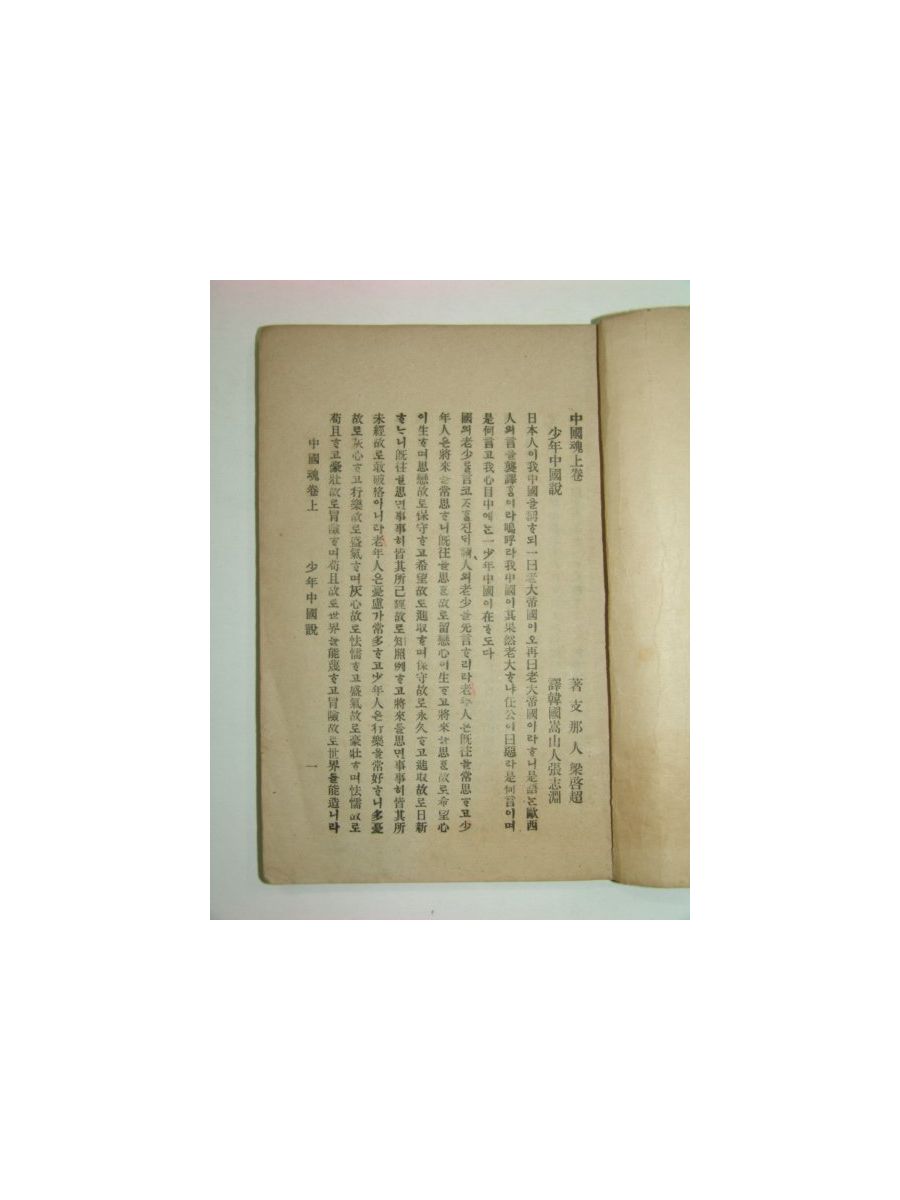 中國魂上卷
著 支那人 梁啓超
少年中國說
譯韓國嵩山人張志淵
日本人이我中國을謂ᄒᆞ되一曰老大帝國이오再曰老大帝國이라ᄒᆞ니是語ᄂᆞᆫ歐西
人의言을襲譯홈이라嗚呼라我中國이其果然老大ᄒᆞ냐任公이曰惡라是何言이며
是何言고我心目中에ᄂᆞᆫ一少年中國이在ᄒᆞ도다
國의老少를言코ᄌᆞ홀진ᄃᆡ請人의老少을先言ᄒᆞ리라老年人은旣往을常思ᄒᆞ고少
年人은將來을常思ᄒᆞ니旣往을思ᄒᆞᆫ故로留戀心이生ᄒᆞ고將來을思ᄒᆞᆫ故로希望心
이生ᄒᆞ며思戀故로保守ᄒᆞ고希望故로進取ᄒᆞ며保守故로永久ᄒᆞ고進取故로日新
ᄒᆞᄂᆞ니旣往을思면事事히皆其所已經故로知照例ᄒᆞ고將來을思면事事히皆其所
未經故로敢破格아니라老年人은憂慮가常多ᄒᆞ고少年人은行樂을常好ᄒᆞ니多憂
故로灰心ᄒᆞ고行樂故로盛氣ᄒᆞ며灰心故로怯懦ᄒᆞ고盛氣故로豪壯ᄒᆞ며怯懦故로
苟且ᄒᆞ고豪壯故로冒險ᄒᆞ며苟且故로世界을能蔑ᄒᆞ고冒險故로世界를能造니라
中國魂卷上 少年中國說 一